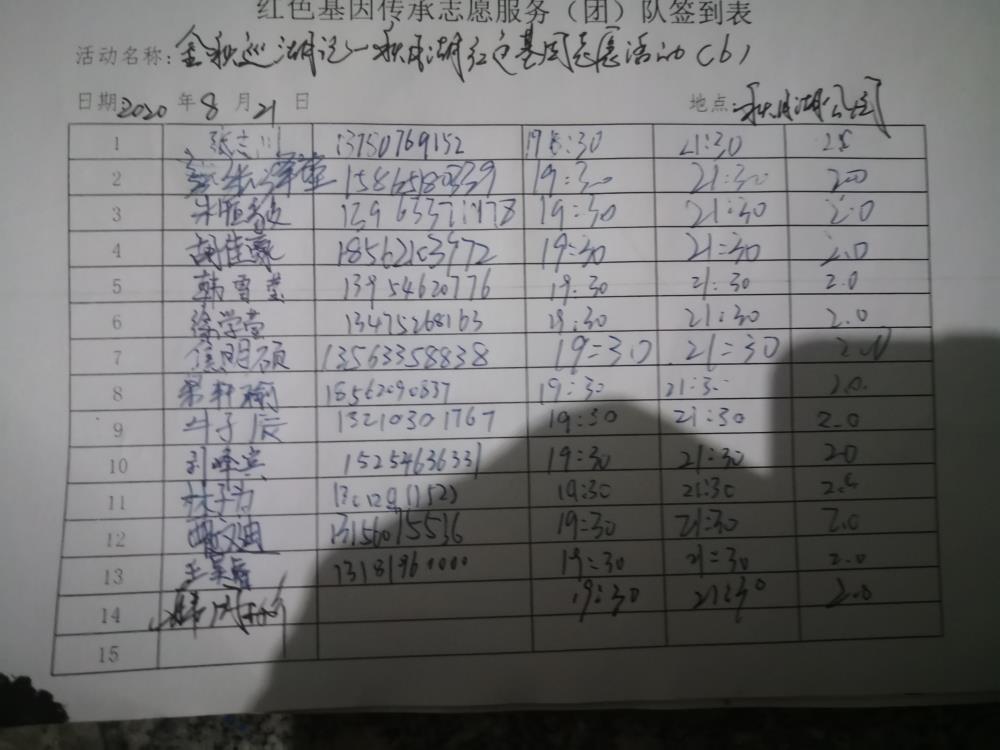 红色基因传承志愿服务（团）队签到表
活动名称：金秋巡湖记—秋月湖红色基因志愿活动(6)
日期2020年8月21日 地点：秋月湖公园
1 张志川 13750769152 19:30 21:30
2 15865180339 19:30 21:30 2.0
3 19:30 21:30 2.0
4 胡佳豪 18562103972 19:30 21:30 2.0
5 韩雪莹 13954620776 19:30 21:30 2.0
6 徐学莹 13475268163 19:30 21:30 2.0
7 侯明硕 13563358838 19:30 21:30 2.0
8 18562090837 19:30 21:30 2.0
9 牛子辰 13210301767 19:30 21:30 2.0
10 15254636331 19:30 21:30 2.0
11 19:30 21:30
12 13156015536 19:30 21:30 2.0
13 13181960000 19:30 21:30 2.0
14 19:30 21:30 2.0
15